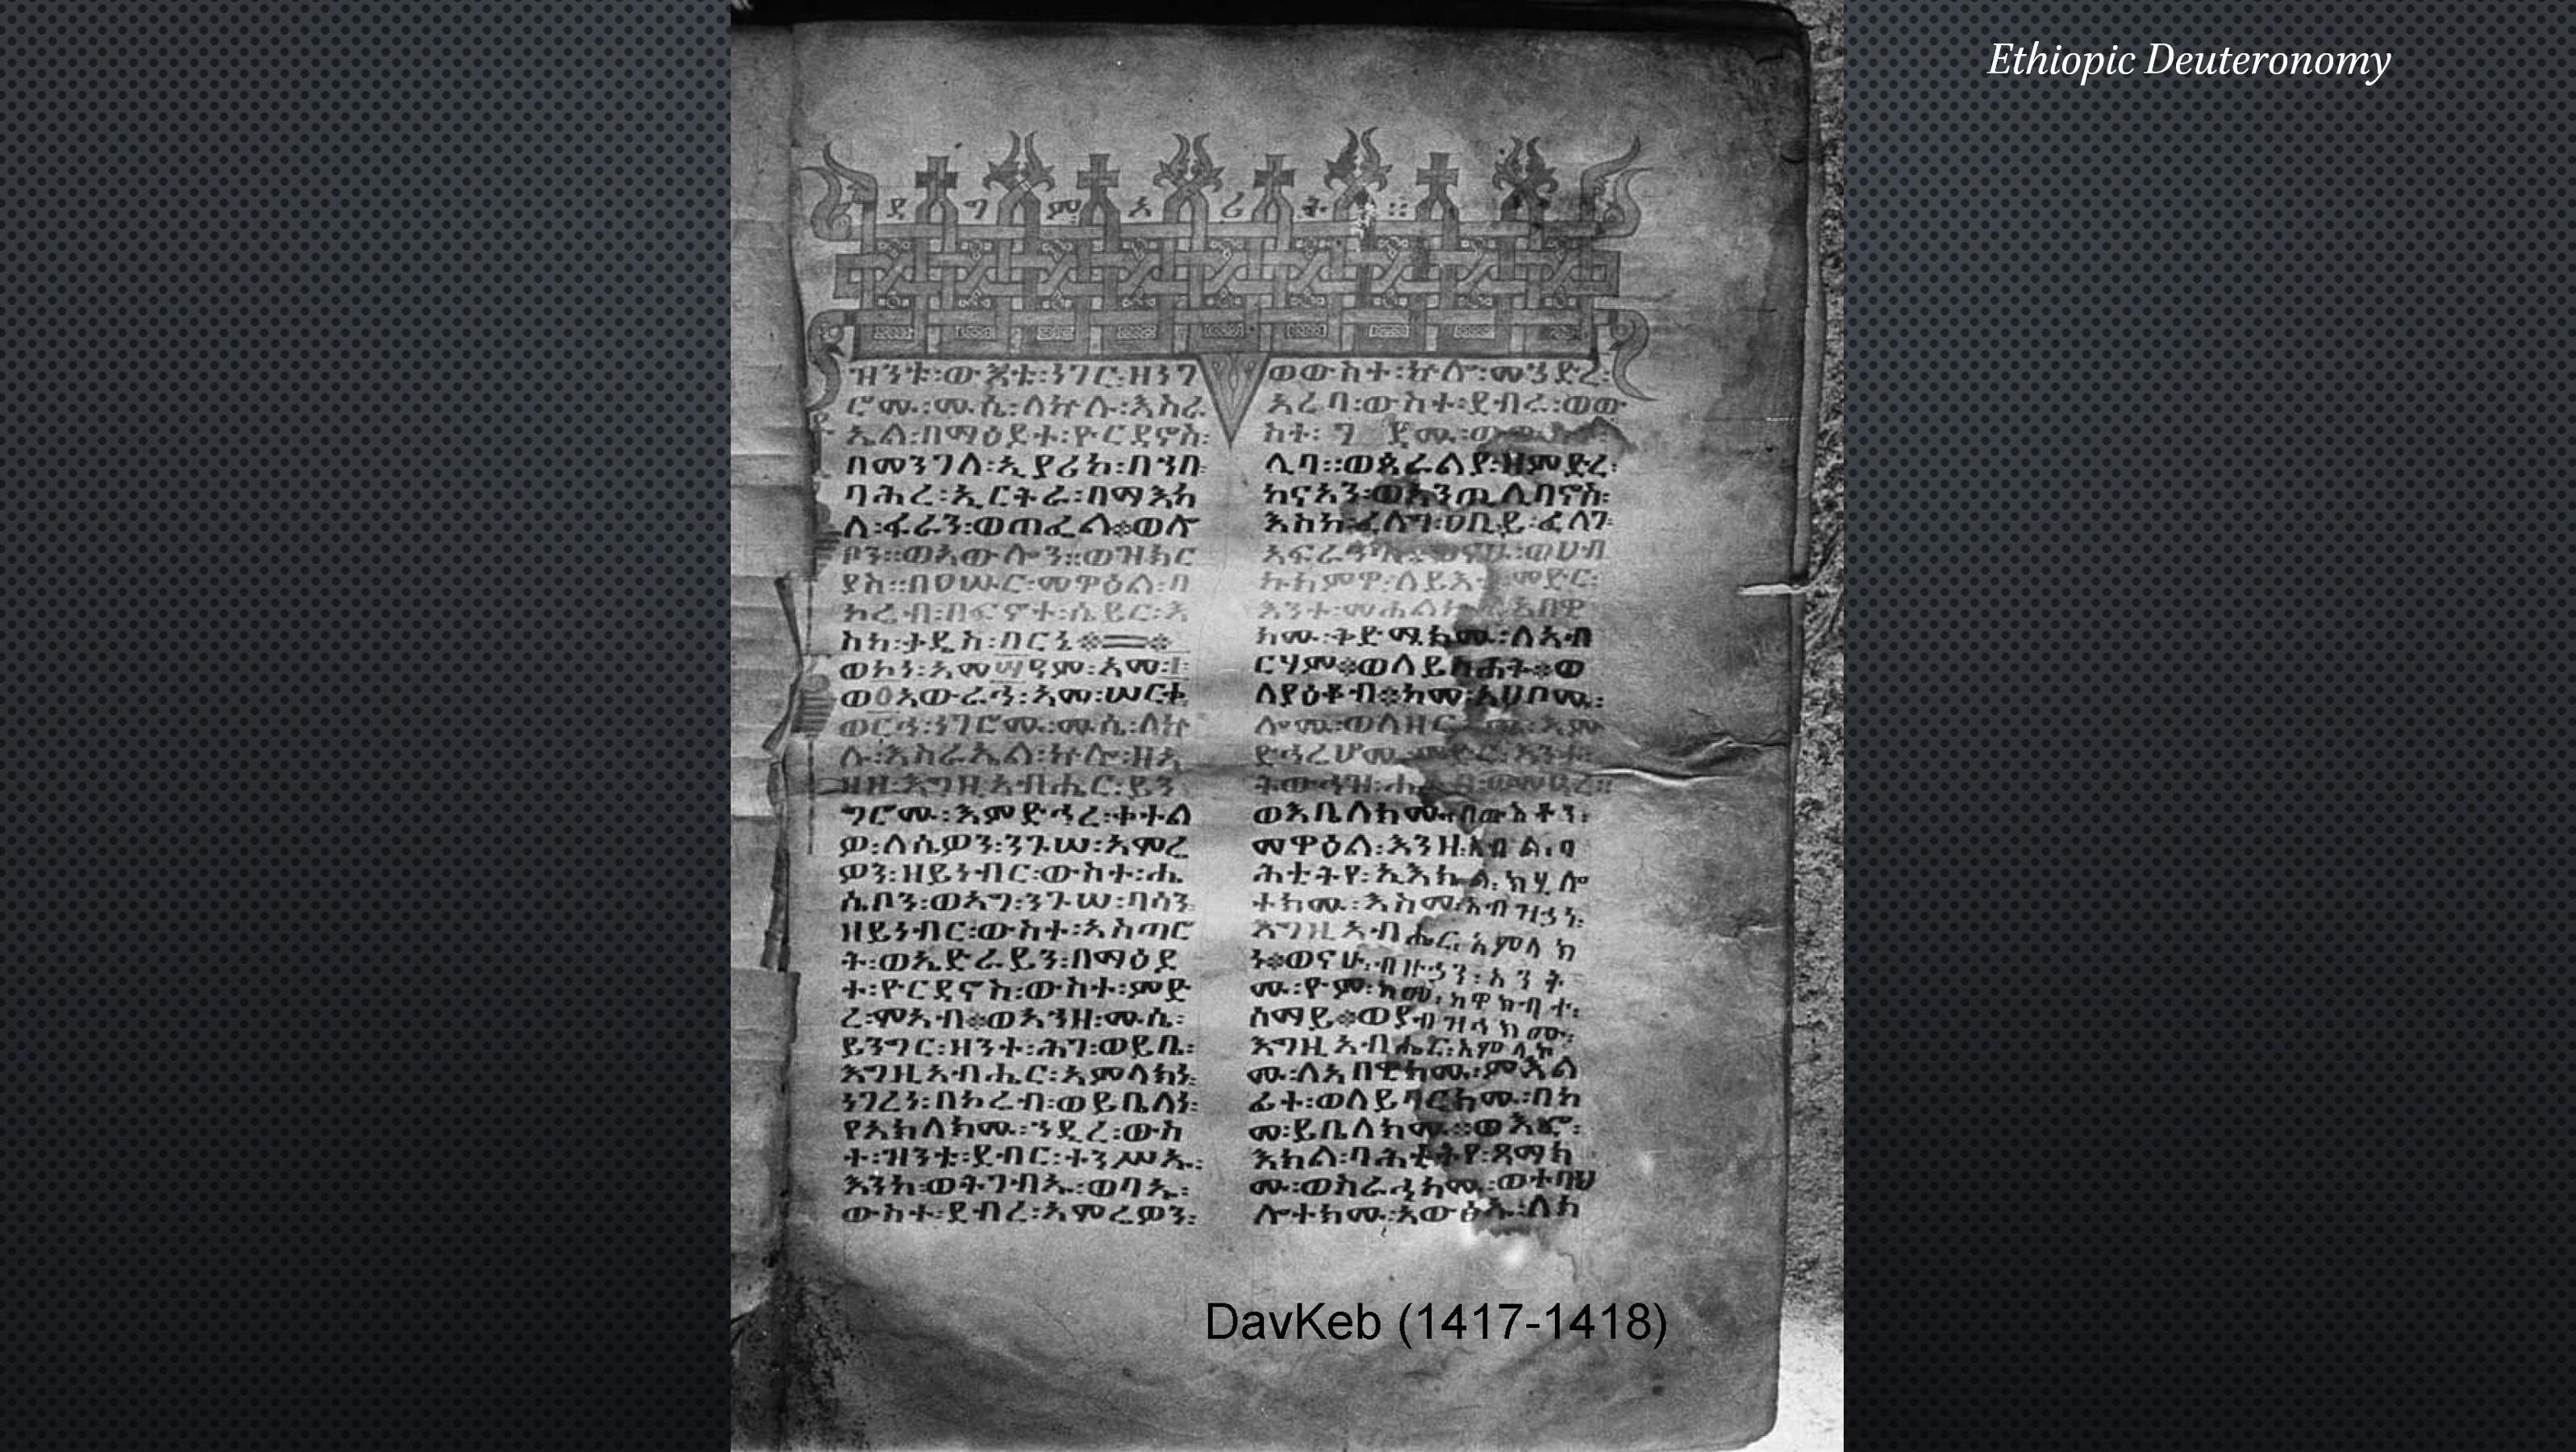 Ethiopic Deuteronomy
ዳግም ኦሪት ፡፡
ዝንቱ፡ውእቱ፡ነገር፡ዘነገ
ሮሙ፡ሙሴ፡ለኵሉ፡እስራ
ኤል፡በማዕደተ፡ዮርዳኖስ፡
በመንገለ፡ኢያሪኮ፡በኀበ
ባሕረ፡ኢርትራ፡በማእከ
ለ፡ፋራን፡ወጦፌል፨ወሎ
ቦን፡፡ወአውሎን፡፡ወዝክር
ያስ፡፡በዐሡር፡መዋዕል፡በ
ኮሬብ፡በፍኖተ፡ሴይር፡እ
ስከ፡ቃዴስ፡በርኔ፨
ወኮነ፡አመ
ወርኅ፡ነገሮሙ፡ሙሴ፡ለኵ
ሉ፡እስራኤል፡ኵሎ፡ዘአ
ዘዘ፡እግዚአብሔር፡ይን
ግሮሙ፡እምድኅረ፡ቀተል
ዎ፡ለሴዎን፡ንጉሠ፡አሞሬ
ዎን፡ዘይነብር፡ውስተ፡ሔ
ሴቦን፡ወአግ፡ንጉሠ፡ባሳን፡
ዘይነብር፡ውስተ፡አስጣሮ
ት፡ወኤድራይን፡በማዕደ
ተ፡ዮርዳኖስ፡ውስተ፡ምድ
ረ፡ሞአብ፨ወአኀዘ፡ሙሴ፡
ይንግር፡ዘንተ፡ሕገ፡ወይቤ፡
እግዚአብሔር፡አምላክነ፡
ነገረነ፡በኮሬብ፡ወይቤለነ፡
የአክለክሙ፡ኀዲረ፡ውስ
ተ፡ዝንቱ፡ደብር፡ተንሥኡ፡
እንከ፡ወትግብኡ፡ወባኡ፡
ውስተ፡ደብረ፡አሞሬዎን፡
ወውስተ፡ኵሎ፡መኃድረ፡
አረባ፡ውስተ፡ደብረ፡ወው
ስተ፡
ሊባ፡፡ወጰራልያ፡ዘምድረ፡
ከናአን፡ወአንጢሊባኖስ፡
እስከ፡ፈለግ፡ዐቢይ፡ፈለገ፡
ኩክምዋ፡ለይእቲ፡ምድር፡
እንተ፡መሐልኩ፡ለአበዊ
ክሙ፡ቅድሜክሙ፡ለአብ
ርሃም፨ወለይስሐቅ፨ወ
ለያዕቆብ፨ከመ፡አሀቦሙ፡
ሎሙ፡ወለዘርኦሙ፡እም
ድኅሬሆሙ፡ምድረ፡እንተ፡
ወእቤለክሙ፡በውእቶን፡
መዋዕል፡እንዘ፡እብል፡ባ
ሕቲትየ፡ኢእክል፡ክሂሎ
ተክሙ፡እስመ፡አብዝኀነ፡
እግዚአብሔር፡አምላክ
ነ፨ወናሁ፡ብዙኃን፡አንት
ሙ፡ዮም፡ከመ፡ከዋክብተ፡
ሰማይ፨ወያብዝኅክሙ፡
እግዚአብሔር፡አምላከ
ሙ፡ለአበዊክሙ፡ምእል
ፊተ፡ወለይባርክሙ፡በከ
መ፡ይቤለክሙ፡፡ወእፎ፡
እክል፡ባሕቲትየ፡ጻማክ
ሙ፡ወስራኅክሙ፡ወተባህ
ሎተክሙ፡አውፅኡ፡ለክ
DavKeb (1417-1418)